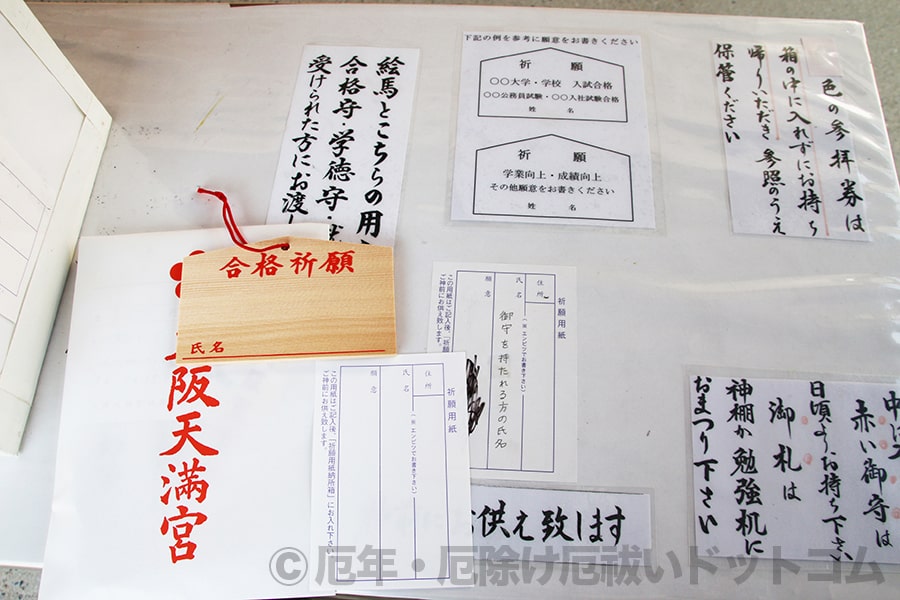 下記の例を参考に願意をお書きください
祈 願
〇〇大学・学校 入試合格
〇〇公務員試験・〇〇入社試験合格
姓 名
祈 願
学業向上・成績向上
その他願意をお書きください
姓 名
色の参拝券は
箱の中に入れずにお持ち
帰りいただき 参照のうえ
保管ください
絵馬とこちらの用
合格守・学徳守・
受けられた方にお渡し
合格祈願
氏名
阪天満宮
祈願用紙
住所
(※エンピツでお書き下さい)
氏名
御守を持たれる方の氏名
願意
この用紙はご記入後、「祈願
ご神前にお供え致します。
祈願用紙
住所
(※エンピツでお書き下さい)
氏名
願意
この用紙はご記入後、「祈願用紙納所箱」にお入れ下さい
ご神前にお供え致します。
お供え致します
赤い御守は
日頃よりお持ち下さい
御札は
神棚か勉強机に
おまつり下さい
©厄年・厄除け厄祓いドットコム